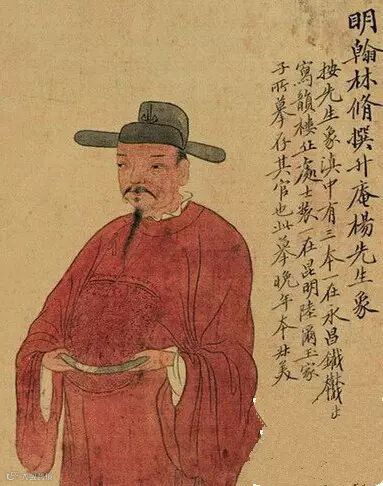 明翰林脩撰升庵楊先生象
按先生象滇中有三本一在永昌鐵
寫韻樓止處士裝一在昆明陸爾玉家
子所摹存其官也此摹晚年本壯美